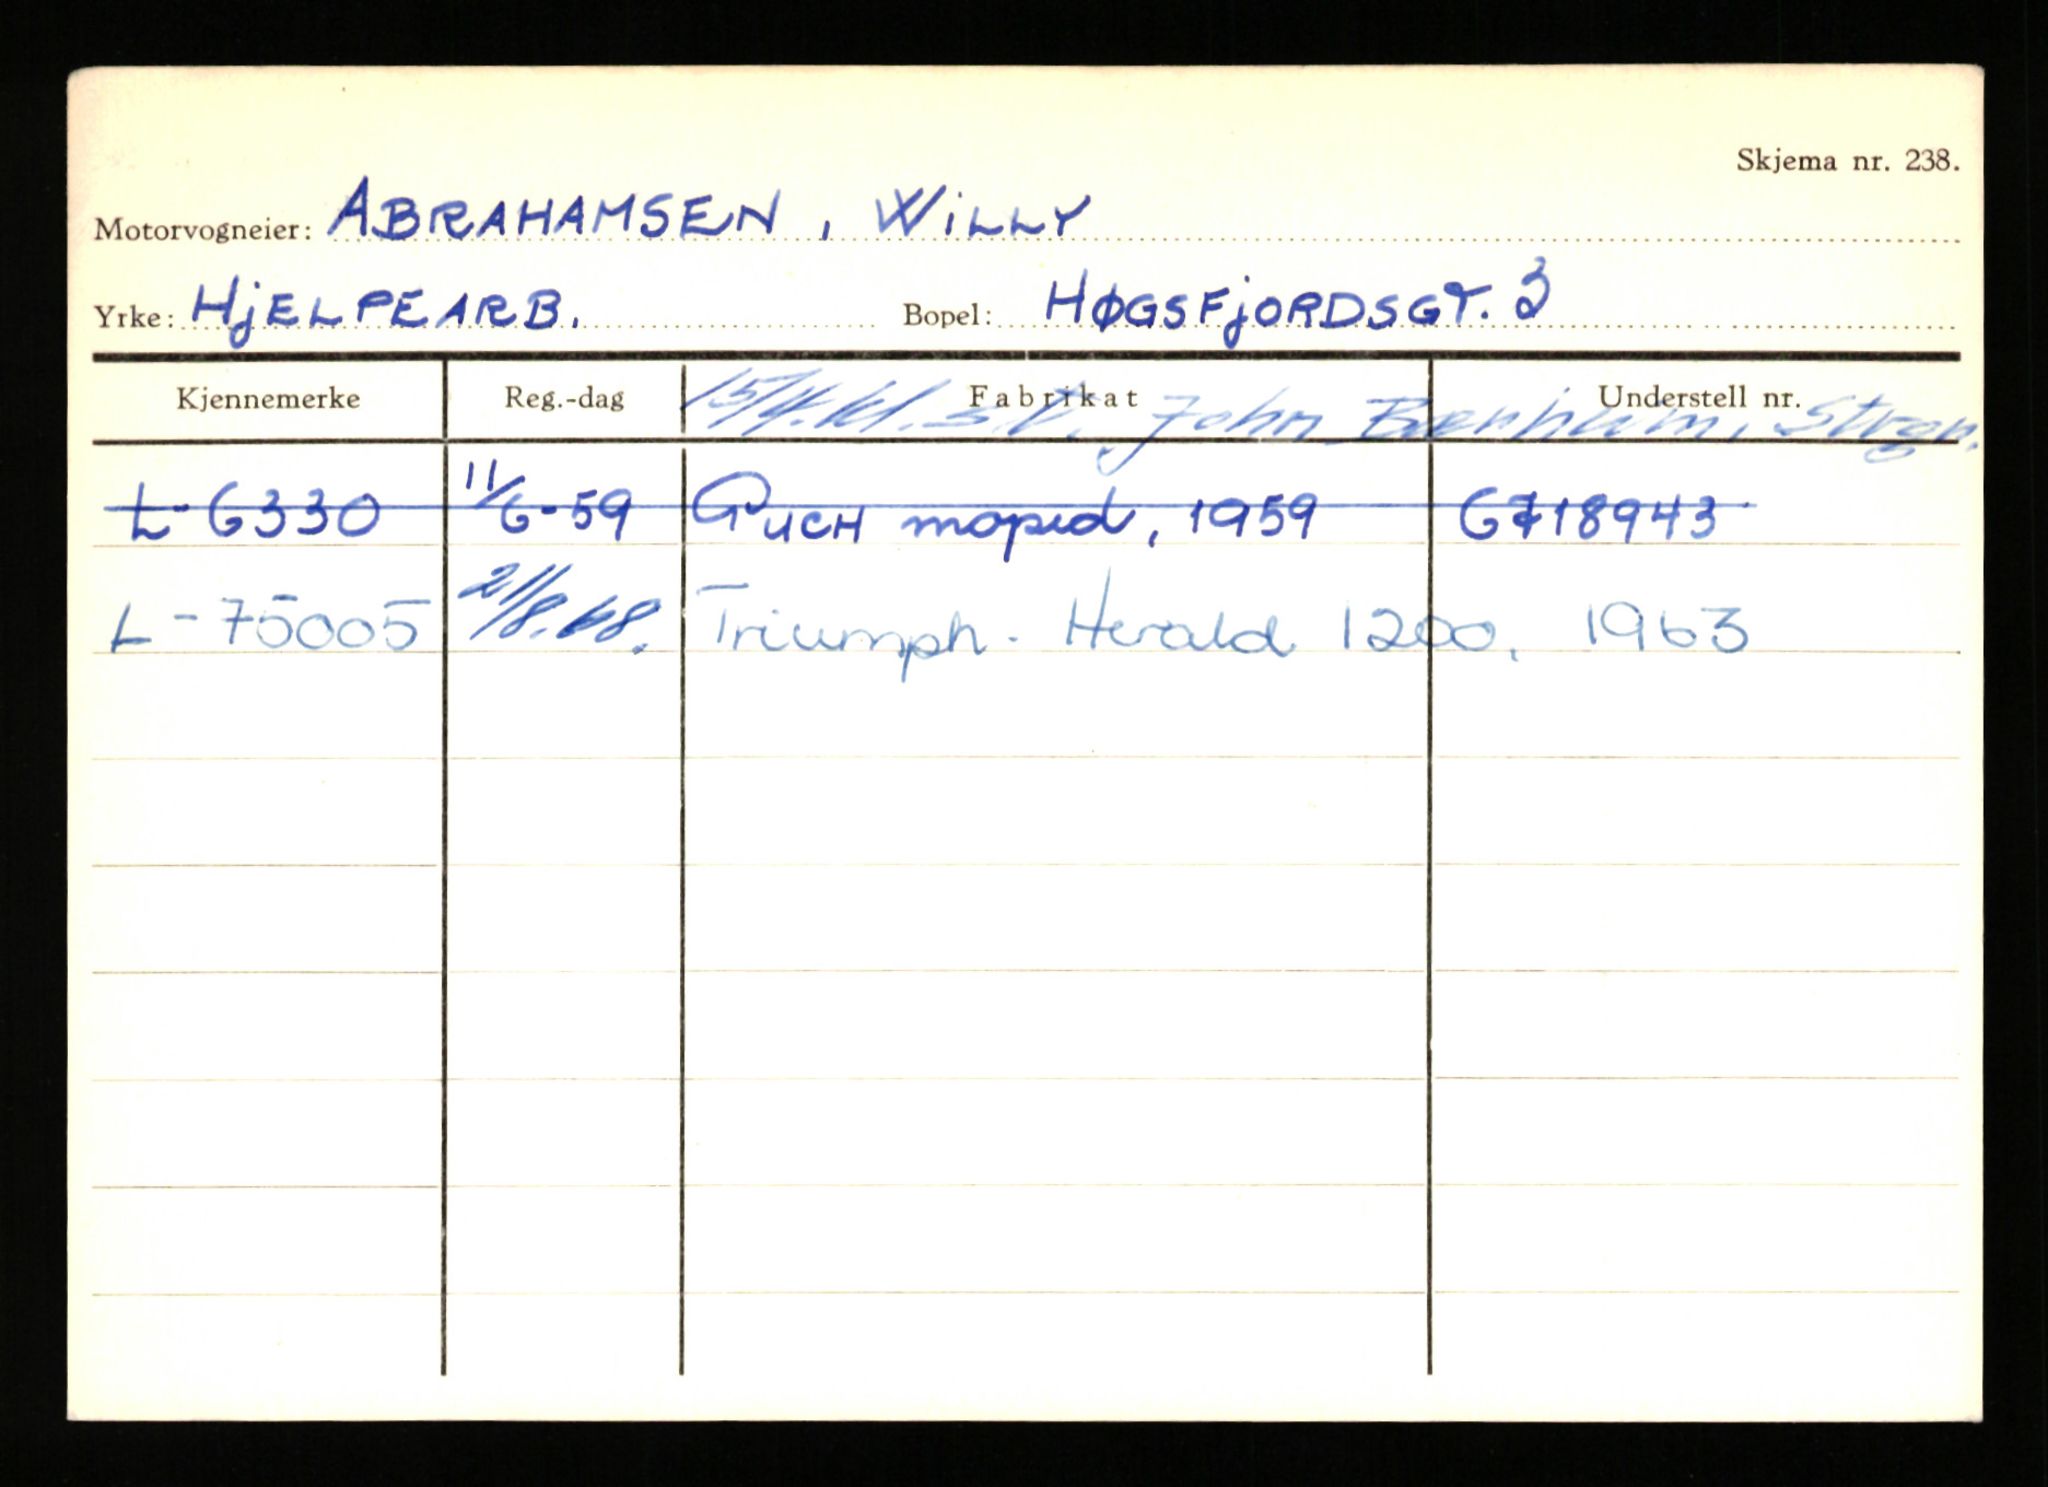 Skjema nr. 238.
Motorvogneier: ABRAHAMSEN, WiLLY
Yrke: HjELPEARB. Bopel: HØGSFjORDSGT. 3
Kjennemerke Reg.-dag Fabrikat Understell nr.
15/4.61. s.t. John
L-6330 11/6-59 PUCH moped, 1959 6718943
L-75005 21/8.68. Triumph. Herald 1200. 1963